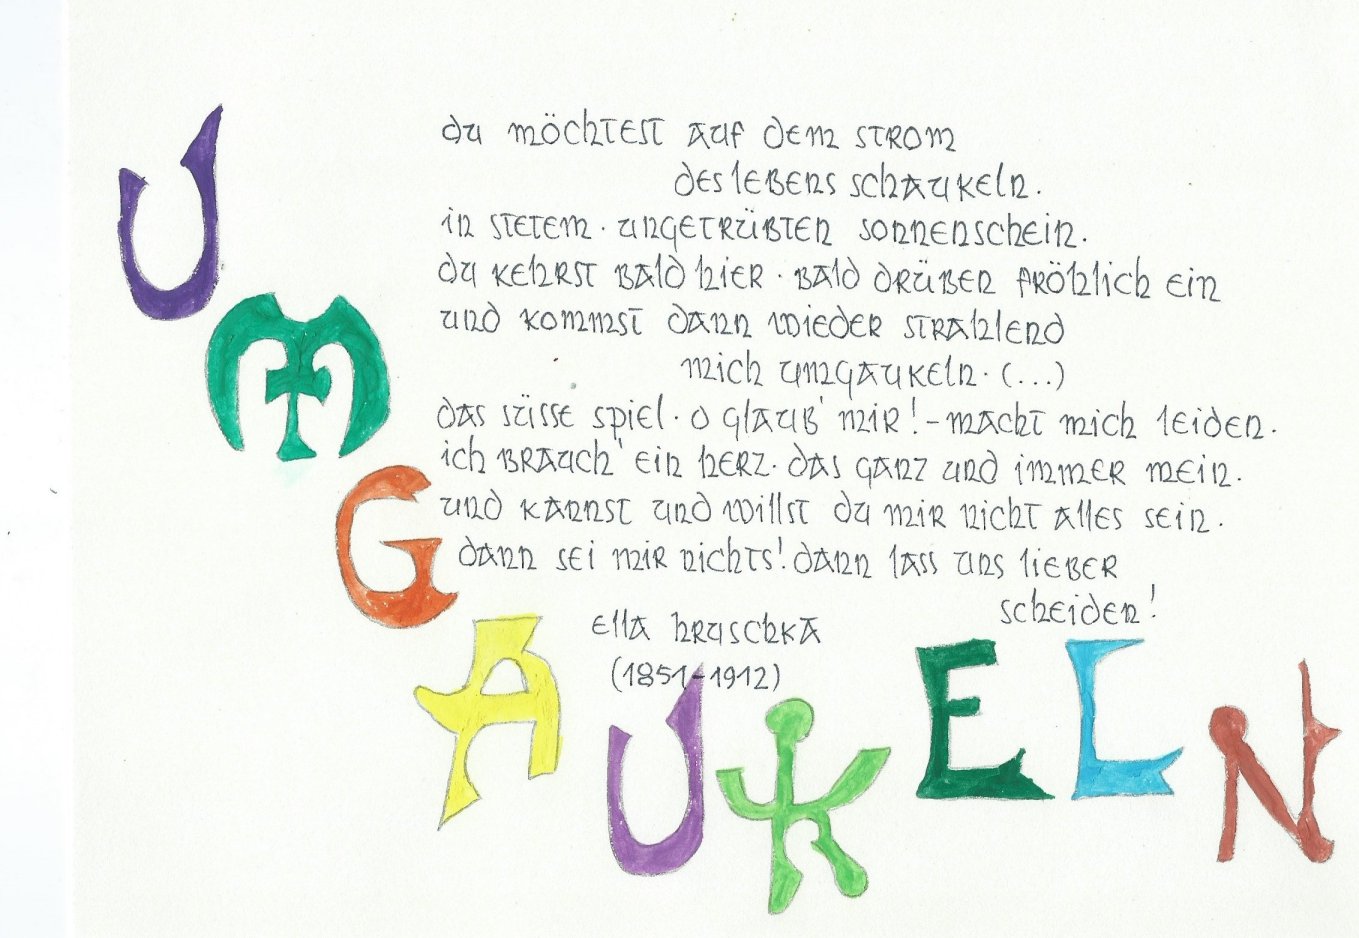 du möchtest auf dem strom
des lebens schaukeln.
in stetem · ungetrübten sonnenschein.
du kehrst bald hier · bald drüben fröhlich ein
und kommst dann wieder strahlend
mich umgaukeln. (...)
das süsse spiel · o glaub' mir! - macht mich leiden.
ich brauch' ein herz · das ganz und immer mein.
und kannst und willst du mir nicht alles sein.
dann sei mir nichts! dann lass uns lieber
scheiden!
ella hruschka
(1851-1912)
UMGAUKELN